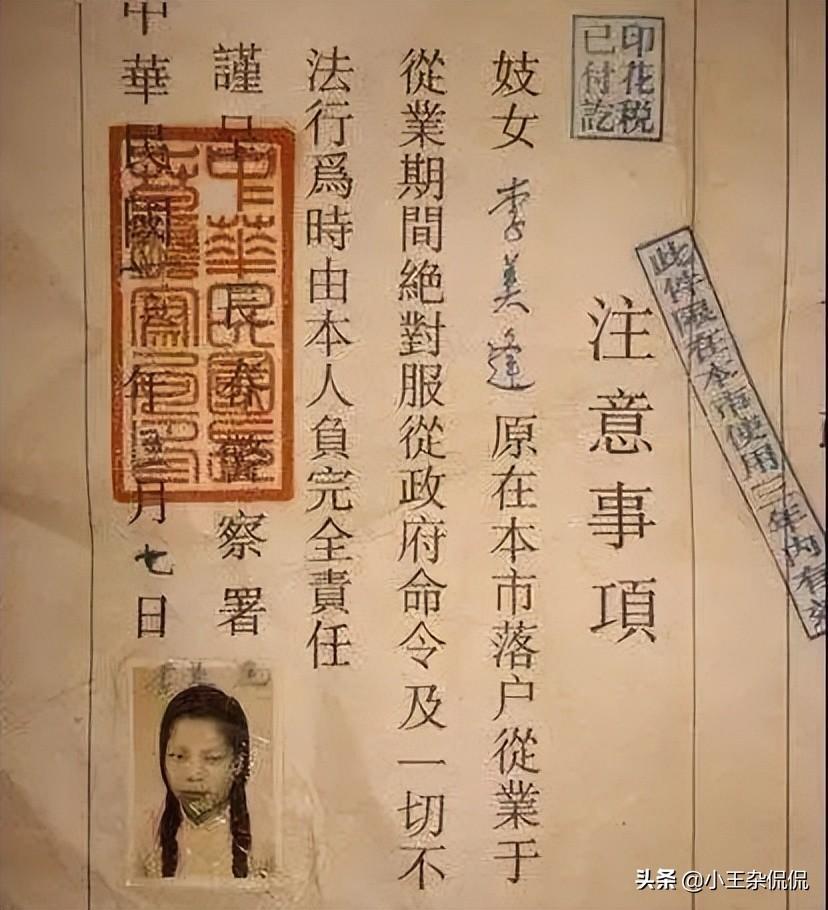 印花税
已付訖
限在本市使用三年内有
注意事項
妓女李美 原在本市落户從業于
從業期間絕對服從政府命令及一切不
法行爲時由本人負完全責任
謹呈 長春警察署
中華民國 年 月七日
中華民國
头条 @小王杂侃侃